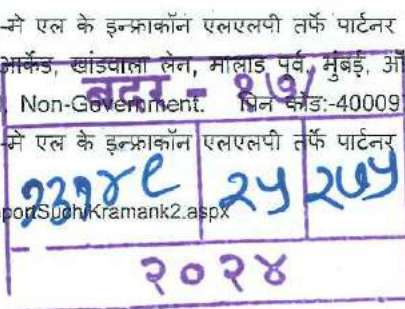 -मे एल के इन्फ्राकॉन एलएलपी तर्फे पार्टनर
आर्केड, खांडवाला लेन, मालाड पूर्व, मुंबई, ऑ
बदर - १७/
Non-Government. पिन कोड:-40009
-मे एल के इन्फ्राकॉन एलएलपी तर्फे पार्टनर
२३१४९ २५ २७५
portSuchiKramank2.aspx
२०२४